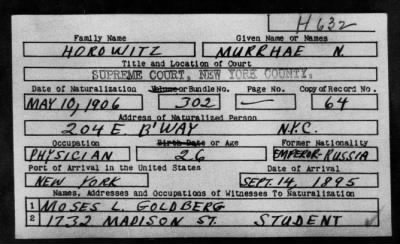 H 632
Family Name Given Name or Names
HOROWITZ MURRHAE N.
Title and Location of Court
SUPREME COURT, NEW YORK COUNTY.
Date of Naturalization Volume or Bundle No. Page No. Copy of Record No.
MAY 10, 1906 302 — 64
Address of Naturalized Person
204 E. B'WAY N.Y.C.
Occupation Birth Date or Age Former Nationality
PHYSICIAN 26 EMPEROR-RUSSIA
Port of Arrival in the United States Date of Arrival
NEW YORK SEPT. 14, 1895
Names, Addresses and Occupations of Witnesses To Naturalization
1 MOSES L. GOLDBERG
2 1732 MADISON ST. STUDENT